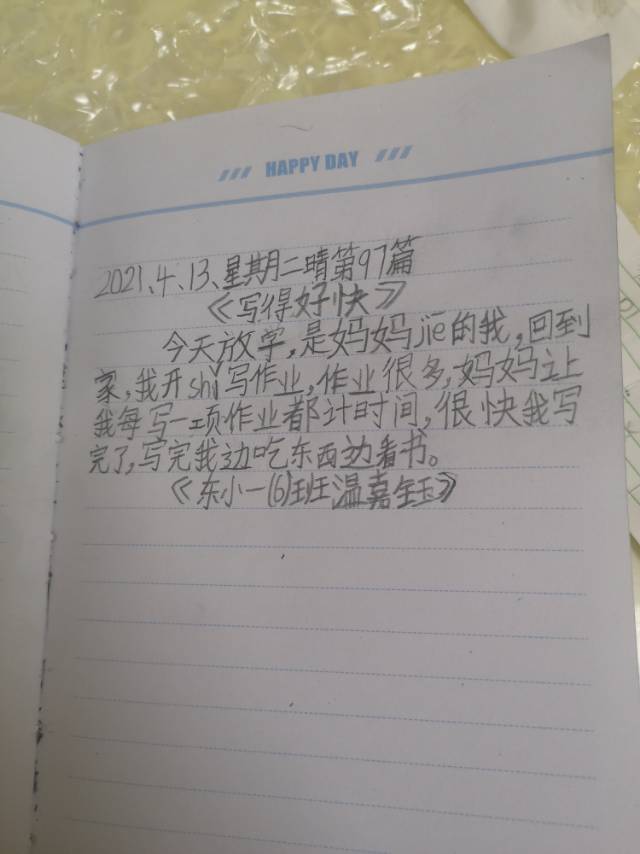 HAPPY DAY
2021、4、13、星期二晴第97篇
《写得好快》
今天放学,是妈妈jiē的我,回到
家,我开shǐ写作业,作业很多,妈妈让
我每写一项作业都计时间,很快我写
完了,写完我边吃东西边看书。
《东小一(6)班温嘉钰》